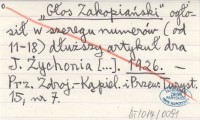 „Głos Zakopiański" ogło-
sił w szeregu numerów (od
11-18) dłuższy artykuł dra
J. Żychonia [...]. 1926. –
Prz. Zdroj.-Kąpiel. i Przew. Turyst.
15, nr 7.